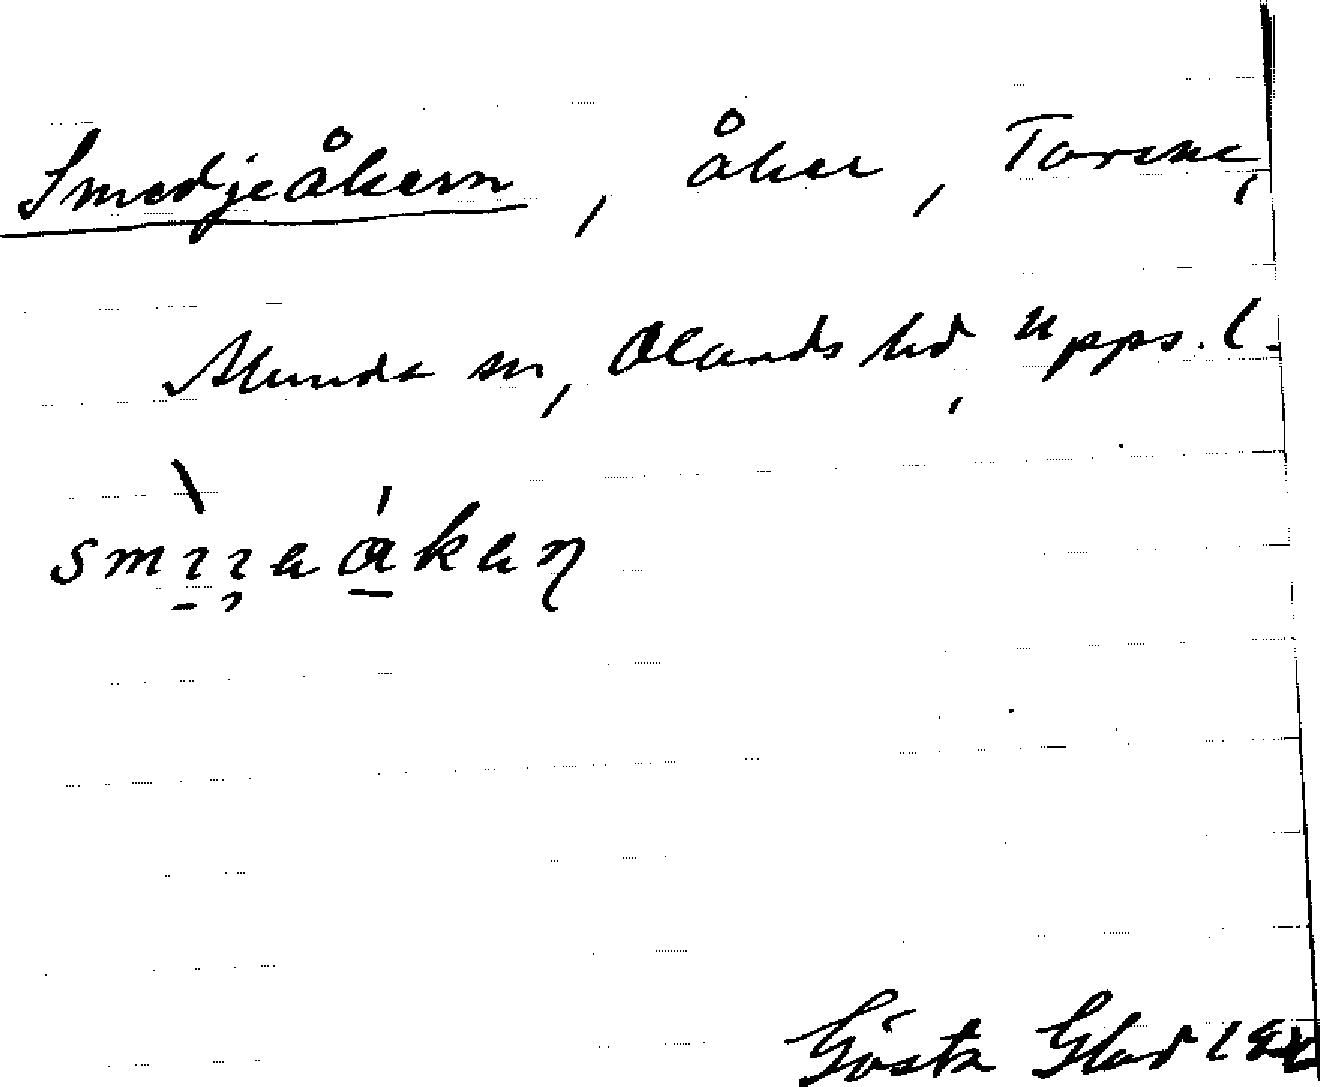 Smedjeåkern, åker, Torsne,
Alunda sn, Olands hd, Upps. l.
smìıaåkaŋ
Gösta Glad